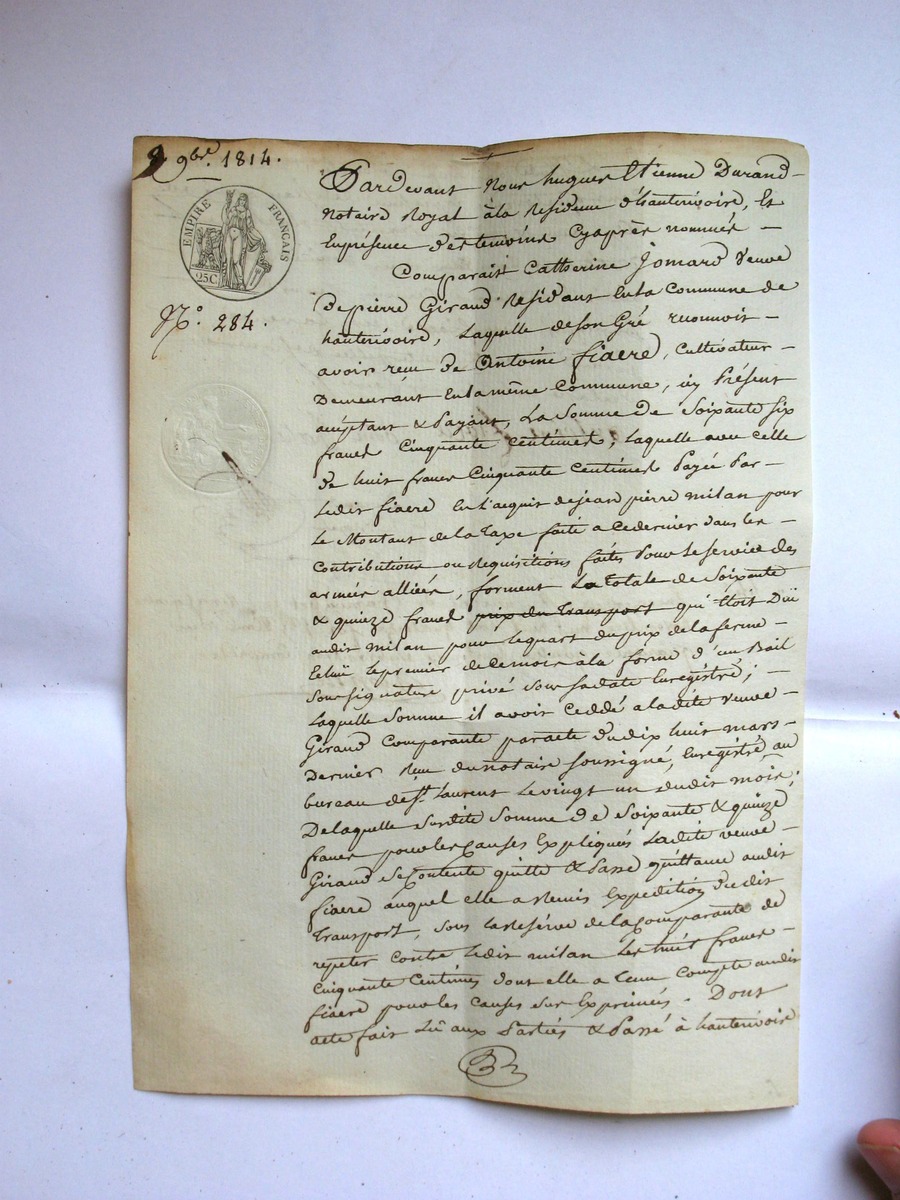 9 9bre. 1814.
EMPIRE FRANÇAIS
25C
No. 284.
Pardevant Nous hugues Etienne Durand
notaire Royal à la Residence d'hauterivoire, Et
En présence des temoins Cyaprès nommés
Comparait Catherine Jomard Veuve
De pierre Giraud Residant En la Commune de
hauterivoire, Laquelle de son Gré reconnoit
avoir reçu de Antoine fiaere, Cultivateur
Demeurant En la même Commune, icy Présent
acceptant & Payant, La Somme de Soixante six
francs Cinquante Centimes; Laquelle avec celle
de huit francs Cinquante Centimes Payée Par
Ledit fiaere En L'acquit de jean pierre milan pour
Le Montant de la Taxe faite a ce dernier dans les
Contributions ou Requisitions faites Pour Le service des
armées alliées, forment La Totale de Soixante
& quinze francs prix du Transport qu'Etoit Dû
audit milan pour le quart du prix de la ferme
Echu le premier de ce mois à la forme d'un Bail
Sous signature privé sous sa date Enregistré;
Laquelle somme il avoit Ceddé a ladite veuve
Giraud Comparante par acte du dix huit mars
Dernier Reçu du notaire soussigné, Enregistré au
bureau de St. Laurent Le vingt un dudit mois;
De laquelle susdite Somme de Soixante & quinze
francs pour les Causes Expliqués Ladite veuve
Giraud se Contente quitte & Passe quittance audit
fiaere auquel elle a Remis Expedition dudit
Transport, sous la Reserve de la Comparante de
repeter Contre Ledit milan Les huit francs
Cinquante Centimes dont elle a tenu Compte audit
fiaere pour les Causes sus Exprimées. Dont
acte fait Lû aux Parties & Passé à hauterivoire